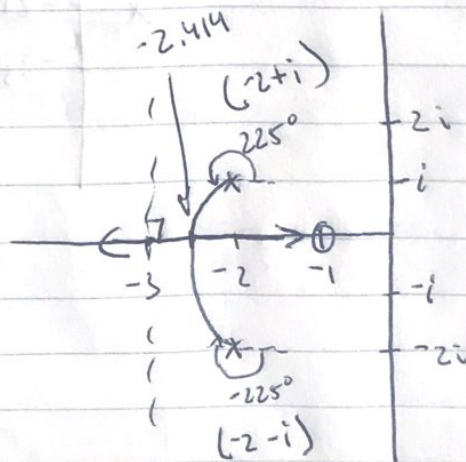 -2.414
(-2+i)
225°
2i
i
-3
-2
-1
-i
-2i
-225°
(-2-i)